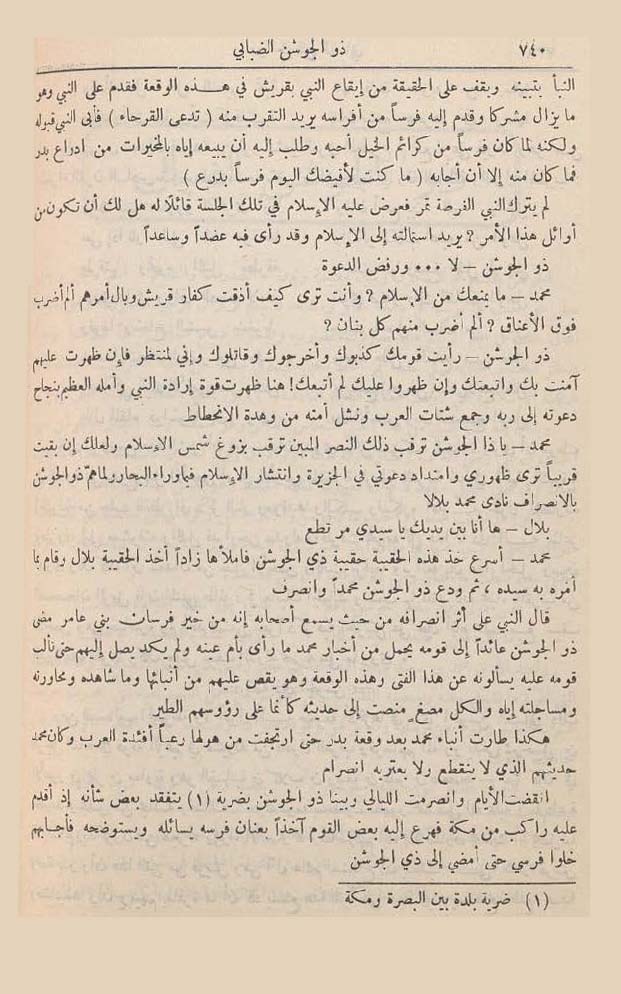 ٧٤٠ ذو الجوشن الضبابي
النبأ بتبيثه ويقف على الحقيقة من إيقاع النبي بقريش في هذه الوقعة فقدم على النبي وهو
ما يزال مشركا وقدم إليه فرساً من أفراسه يريد التقرب منه ( تدعى القرحاء ) فأبى النبي قبوله
ولكنه لما كان فرساً من كرائم الخيل أحبه وطلب إليه أن يبيعه إياه بالمخيرات من ادراع بدر
فما كان منه إلا أن أجابه ( ما كنت لأقيضك اليوم فرساً بدرع )
لم يترك النبي الفرصة تمر فعرض عليه الإسلام في تلك الجلسة قائلاً له هل لك أن تكون من
أوائل هذا الأمر ? يريد استمالته إلى الإسلام وقد رأى فيه عضداً وساعداً
ذو الجوشن — لا ... ورفض الدعوة
محمد — ما يمنعك من الإسلام ? وأنت ترى كيف أذقت كفار قريش وبال أمرهم ألم أضرب
فوق الأعناق ? ألم أضرب منهم كل بنان ?
ذو الجوشن — رأيت قومك كذبوك وأخرجوك وقاتلوك وإني لمنتظر فإن ظهرت عليهم
آمنت بك واتبعتك وإن ظهروا عليك لم أتبعك! هنا ظهرت قوة إرادة النبي وأمله العظيم بنجاح
دعوته إلى ربه وجمع شتات العرب ونشل أمته من وهدة الانحطاط
محمد — يا ذا الجوشن ترقب ذلك النصر المبين ترقب بزوغ شمس الاسلام ولعلك إن بقيت
قريباً ترى ظهوري وامتداد دعوتي في الجزيرة وانتشار الإسلام فيما وراء البحار ولما همّ ذو الجوشن
بالانصراف نادى محمد بلالا
بلال — ها أنا بين يديك يا سيدي مر تطع
محمد — أسرع خذ هذه الحقيبة حقيبة ذي الجوشن فاملأها زاداً أخذ الحقيبة بلال وقام بما
أمره به سيده ، ثم ودع ذو الجوشن محمداً وانصرف
قال النبي على أثر انصرافه من حيث يسمع أصحابه إنه من خير فرسان بني عامر مضى
ذو الجوشن عائداً إلى قومه يحمل من أخبار محمد ما رأى بأم عينه ولم يكد يصل إليهم حتى تألب
قومه عليه يسألونه عن هذا الفتى وهذه الوقعة وهو يقص عليهم من أنبائها وما شاهده ومحاورته
ومساجلته إياه والكل مصغ منصت إلى حديثه كأنما على رؤوسهم الطير
هكذا طارت أنباء محمد بعد وقعة بدر حتى ارتجفت من هولها رعباً أفئدة العرب وكان محمد
حديثهم الذي لا ينقطع ولا يعتريه انصرام
انقضت الأيام وانصرمت الليالي وبينا ذو الجوشن بضرية (١) يتفقد بعض شأنه إذ أقدم
عليه راكب من مكة فهرع إليه بعض القوم آخذاً بعنان فرسه يسائله ويستوضحه فأجابهم
خلوا فرسي حتى أمضي إلى ذي الجوشن
(١) ضرية بلدة بين البصرة ومكة